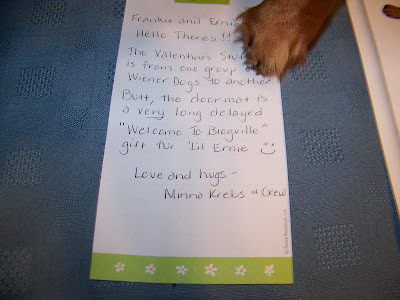 Frankie and Ernie
Hello Theres !!
The Valentines Stuff
is from one group of
Wiener Dogs to another
Butt, the doormat is
a very long delayed
"Welcome To Blogville"
gift fur 'Lil Ernie ☺
Love and hugs -
Minna Krebs & Crew